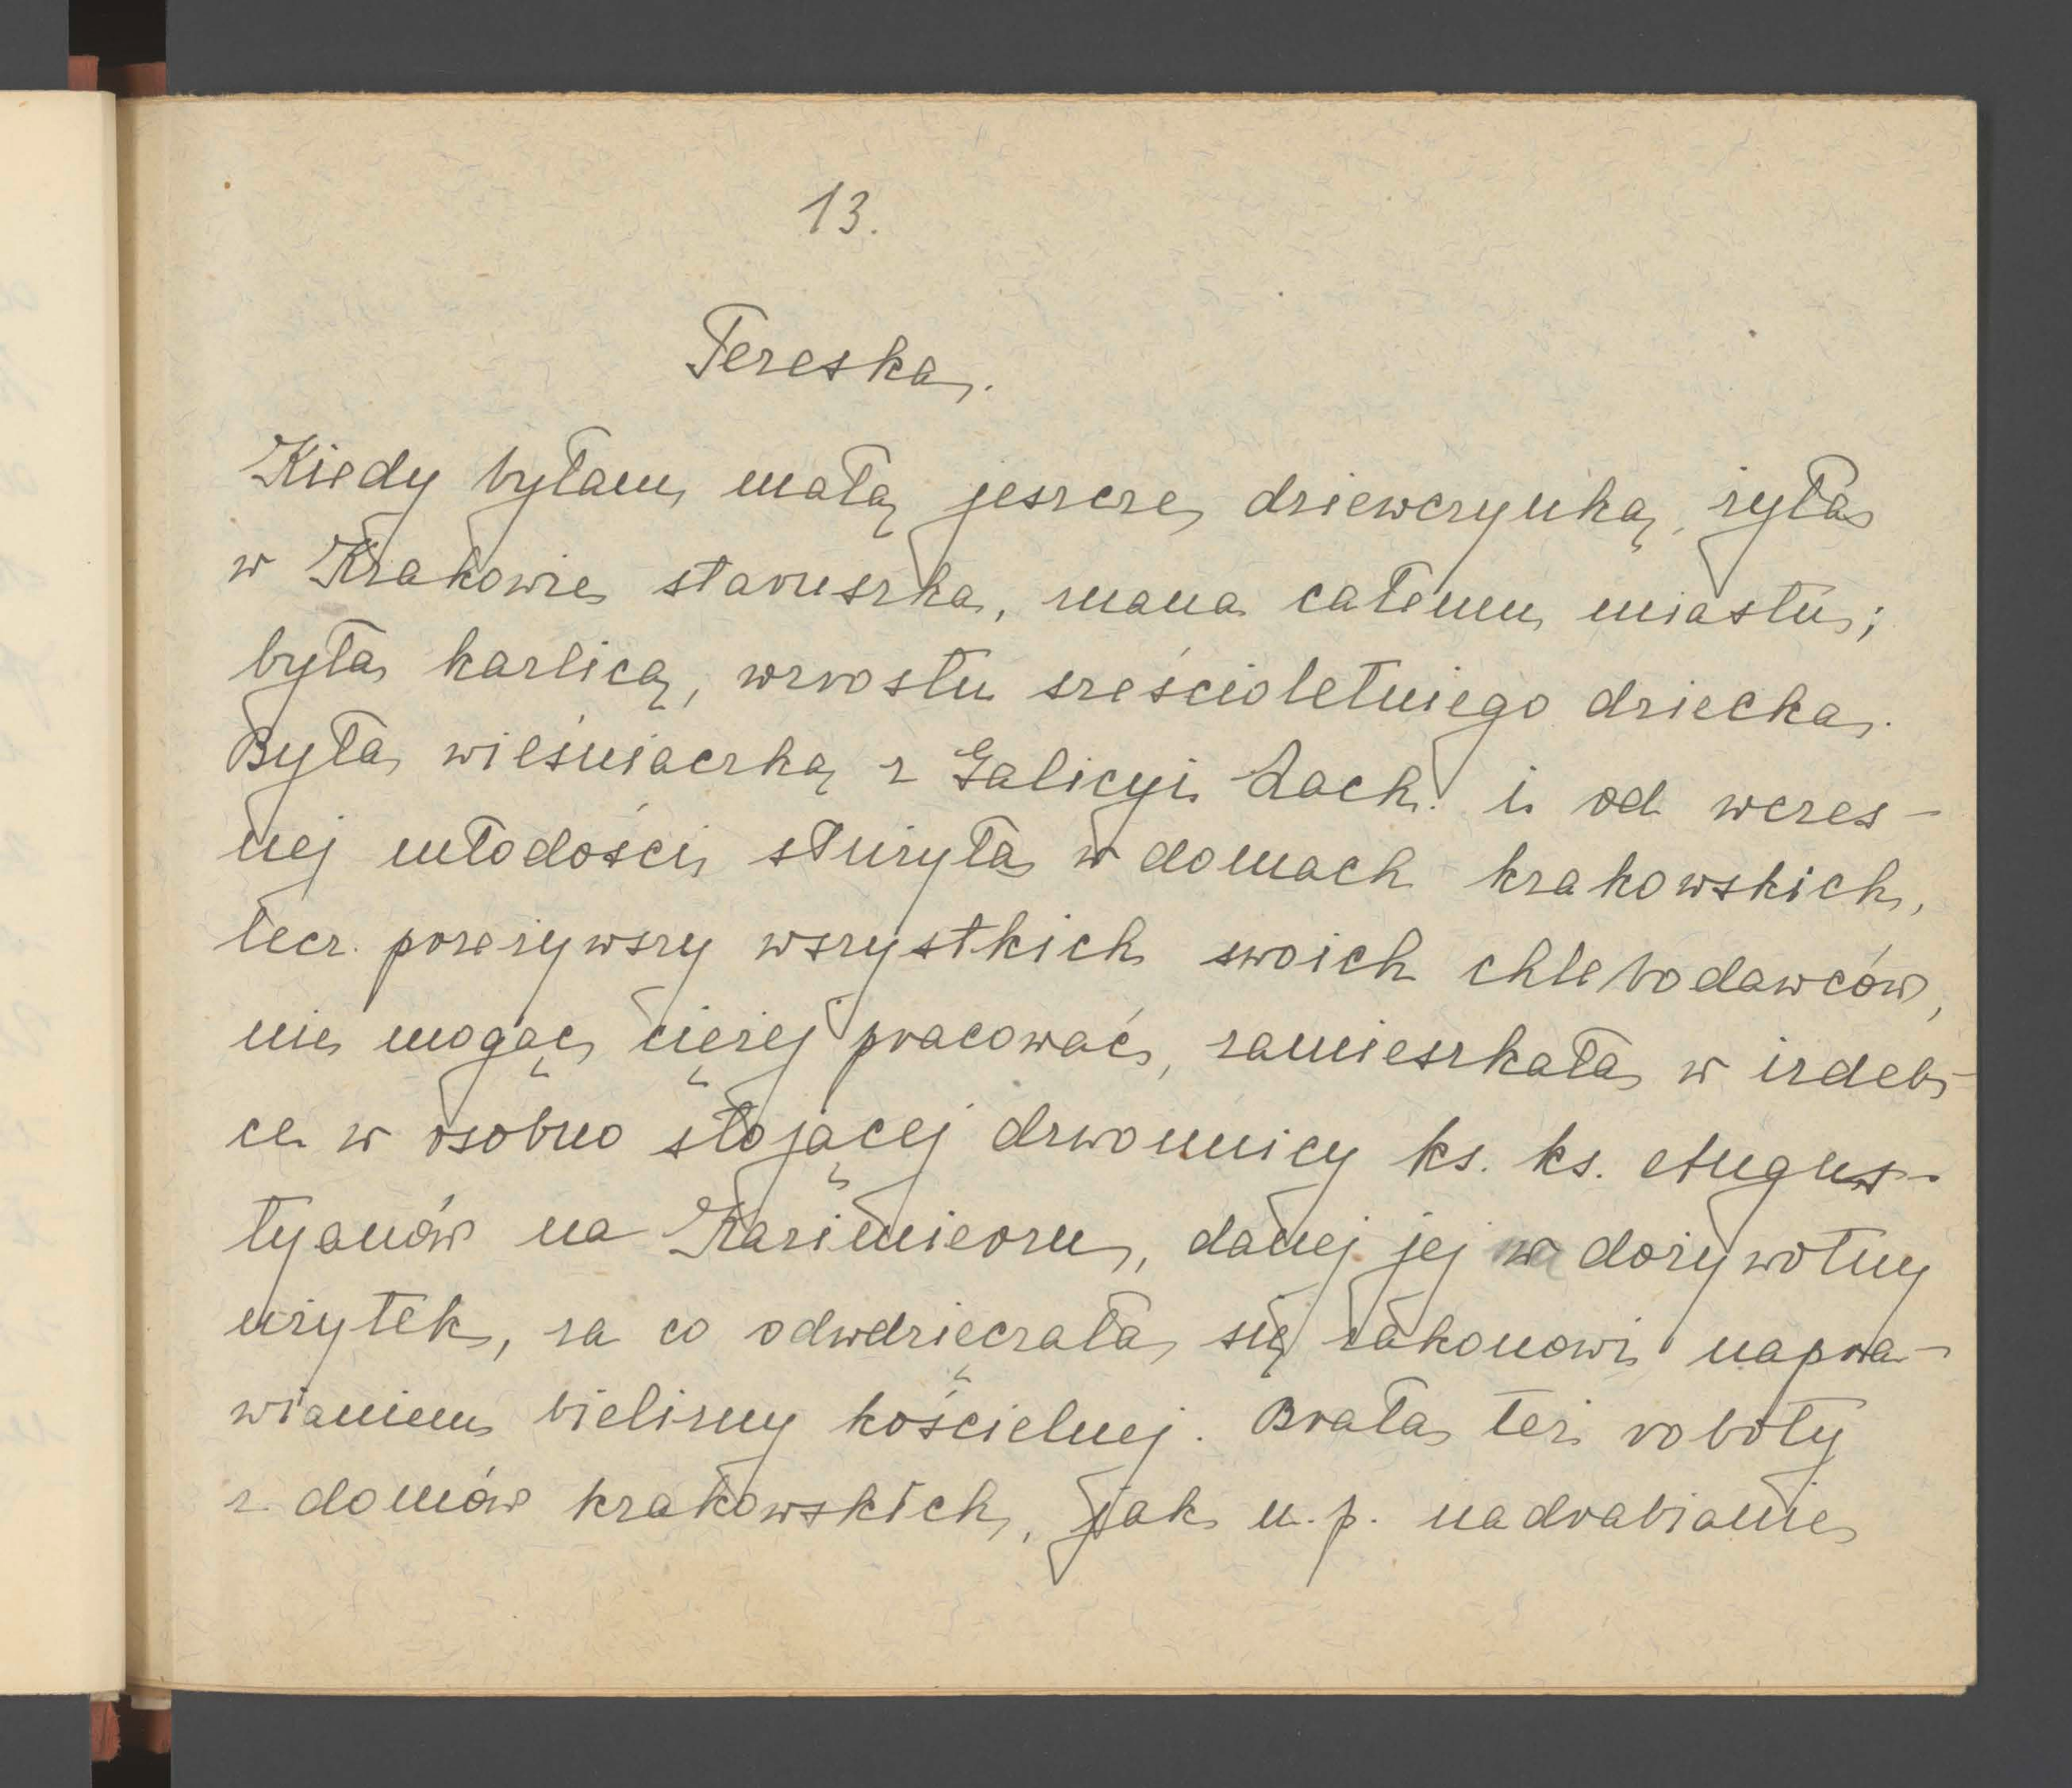 13.
Tereska.
Kiedy byłam małą jeszcze dziewczynką, żyła
w Krakowie staruszka, znana całemu miastu;
była karlicą, wzrostu sześcioletniego dziecka.
Była wieśniaczką z Galicyi Zach. i od wczes-
nej młodości służyła w domach krakowskich,
lecz przeżywszy wszystkich swoich chlebodawców,
nie mogąc ciężej pracować, zamieszkała w izdeb-
ce w osobno stojącej dzwonnicy ks. ks. Augus-
tyanów na Kazimierzu, danej jej w dożywotny
użytek, za co odwdzięczała się zakonowi napra-
wianiem bielizny kościelnej. Brała też roboty
z domów krakowskich, jak n.p. nadrabianie